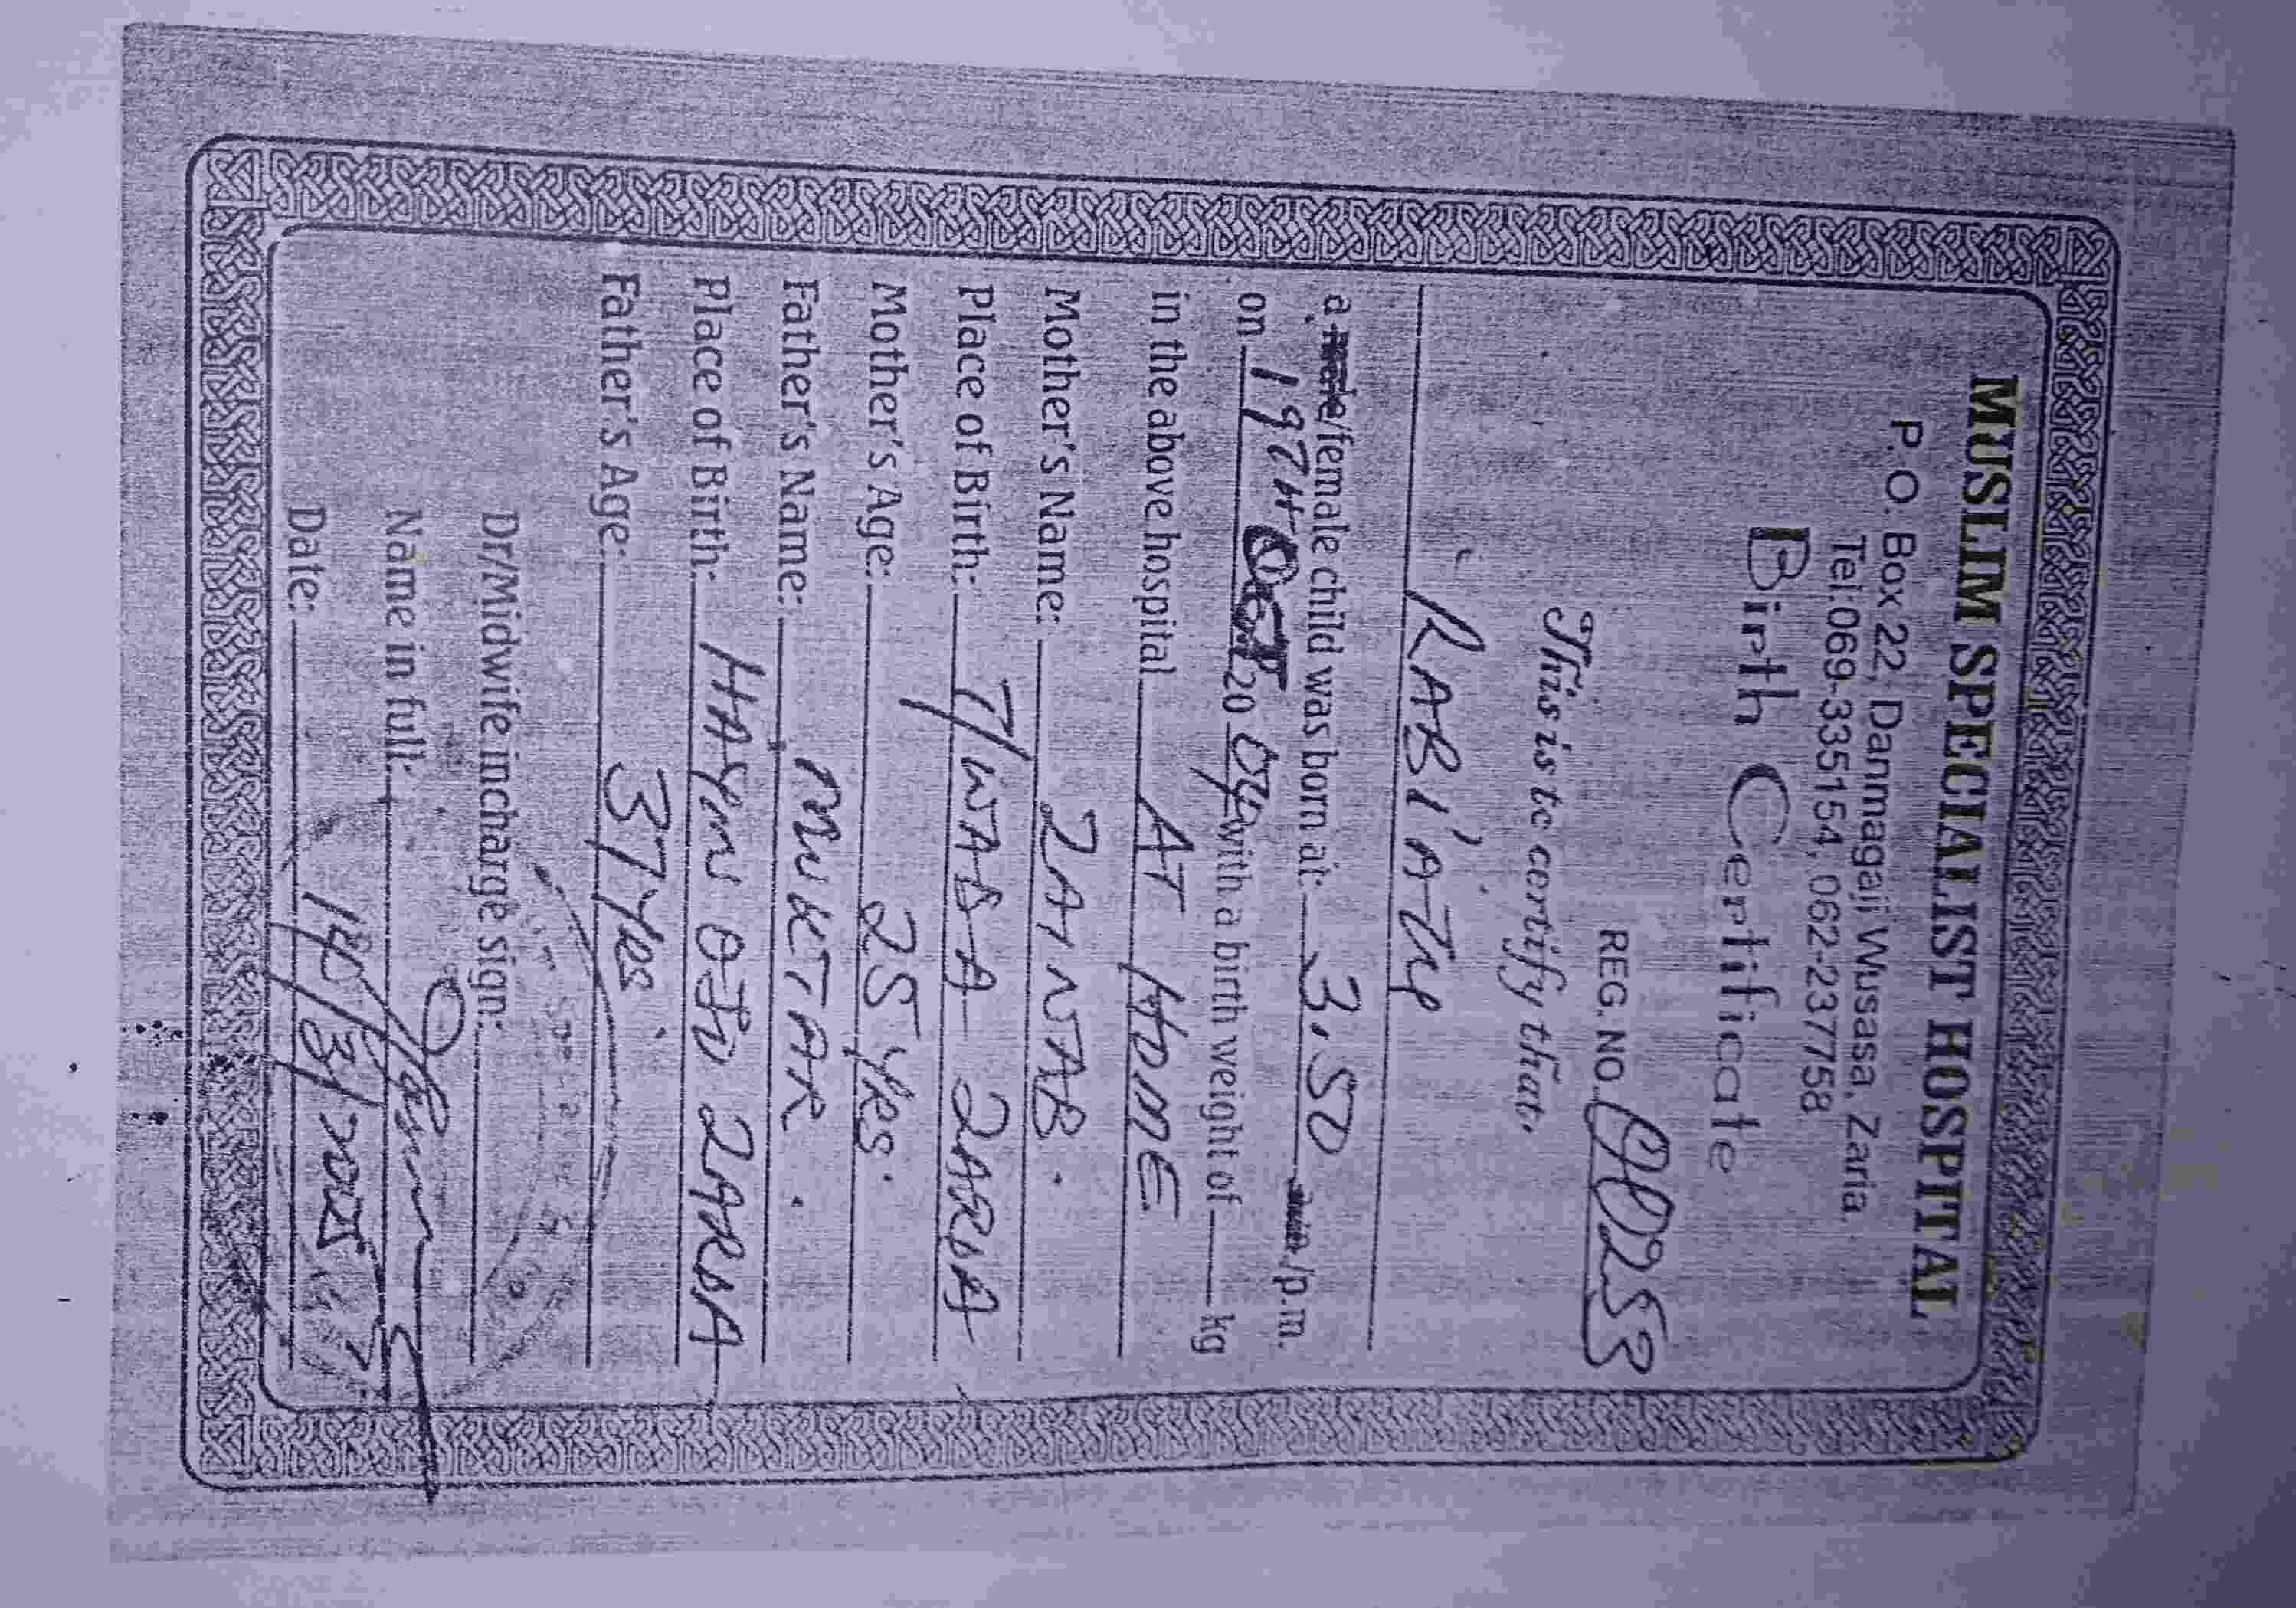 MUSLIM SPECIALIST HOSPITAL
P.O. Box 22, Danmagaji Wusasa, Zaria
Tel:069-335154, 062-237758
Birth Certificate
REG. NO. 00253
This is to certify that
RABI'ATU
a male/female child was born at 3.50 am/p.m.
on 19TH OCT 20 04 with a birth weight of kg
in the above hospital AT HOME
Mother's Name: ZAINAB.
Place of Birth: T/WADA ZARIA
Mother's Age: 25 YRS.
Father's Name: MUKTAR.
Place of Birth: HAYIN OJO ZARIA
Father's Age: 37 YRS
Dr/Midwife incharge sign:
Name in full:
Date: